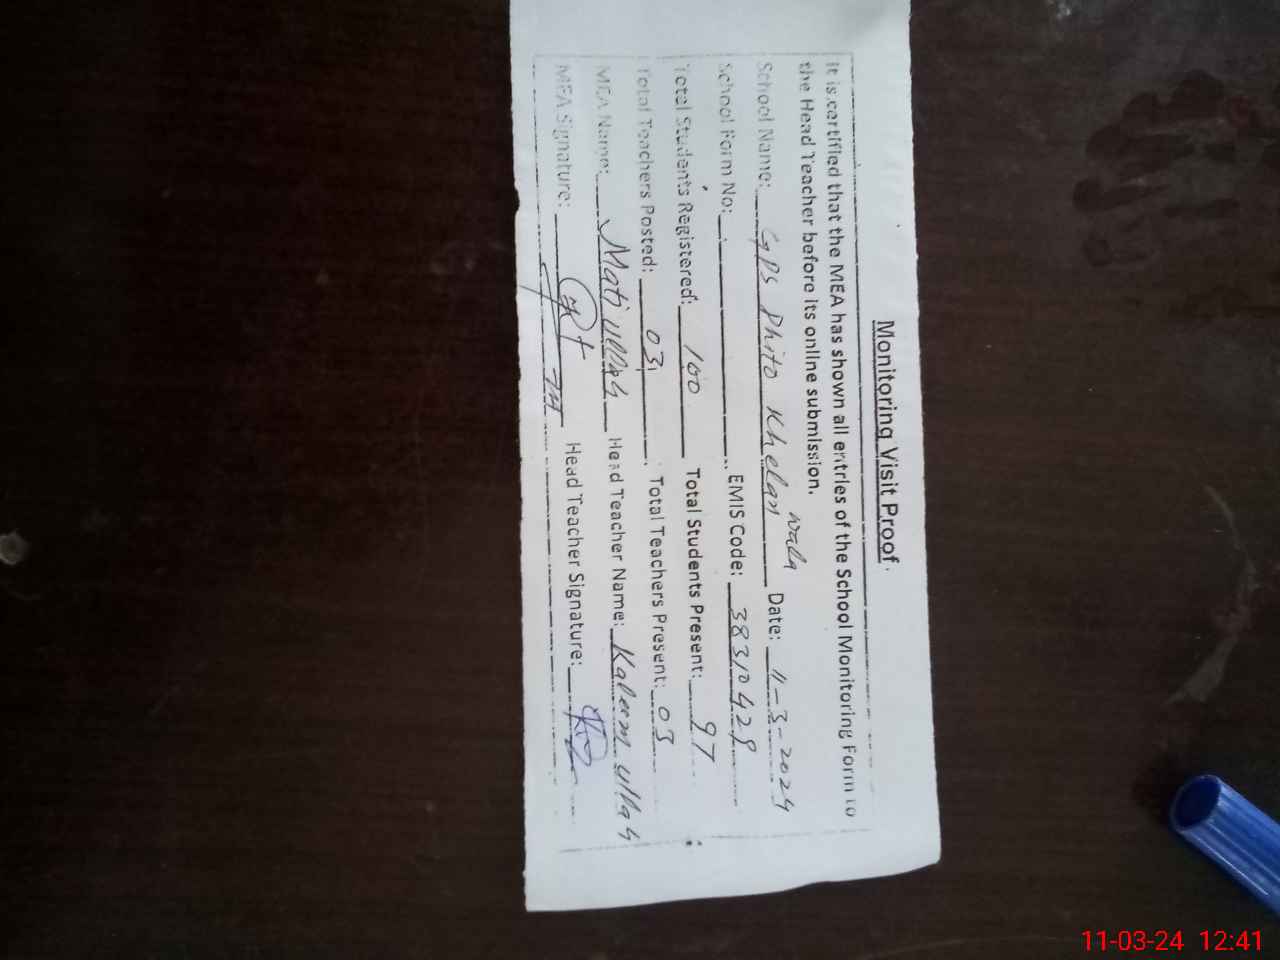 Monitoring Visit Proof
It is certified that the MEA has shown all entries of the School Monitoring Form to
the Head Teacher before its online submission.
School Name: GPS Phito Khelan wala Date: 11-3-2024
School Form No: EMIS Code: 38310428
Total Students Registered: 100 Total Students Present: 97
Total Teachers Posted: 03 Total Teachers Present: 03
MEA Name: Mati ullah Head Teacher Name: Kaleem ullah
MEA Signature: Head Teacher Signature:
11-03-24 12:41